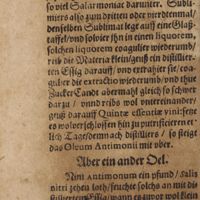 so viel Salarmoniac darunter. Subli-
miers also zum dritten oder vierdtenmal/
denselben Sublimat lege auff eine Glaß-
taffel/vnd solvier jhn in einen liquorem,
solchen liquorem coagulier wiederumb/
reib die Materia klein/geuß ein distillier-
ten Essig darauff/ vnd extrahier sie/ coa-
gulier die extractio wiederumb/ vnd thut
Zucker Candt abermahl gleich so schwer
darzu/ vnnd reibs wol vntereinander/
geuß darauff Quintæ essentiæ vini: setze
es wolverschlossen hin zu putrificiren
ch Tage/demnach distilliers/ so steigt
das Oleum Antimonii mit uber.
Aber ein ander Oel.
Nim Antimonium ein pfund/ Salis
nitri zehen loth/feuchte solchs an mit di-
stilliertem Essig/wann es zuvor wol klein